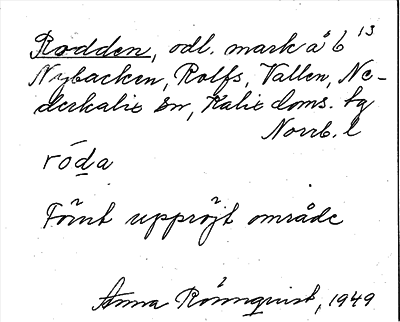 Rodden, odl. mark å 6 13
Nybacken, Rolfs, Vallen, Ne-
derkalix sn, Kalix doms. tg
Norrb. l
róda
Förut uppröjt område
Anna Rönnqvist, 1949